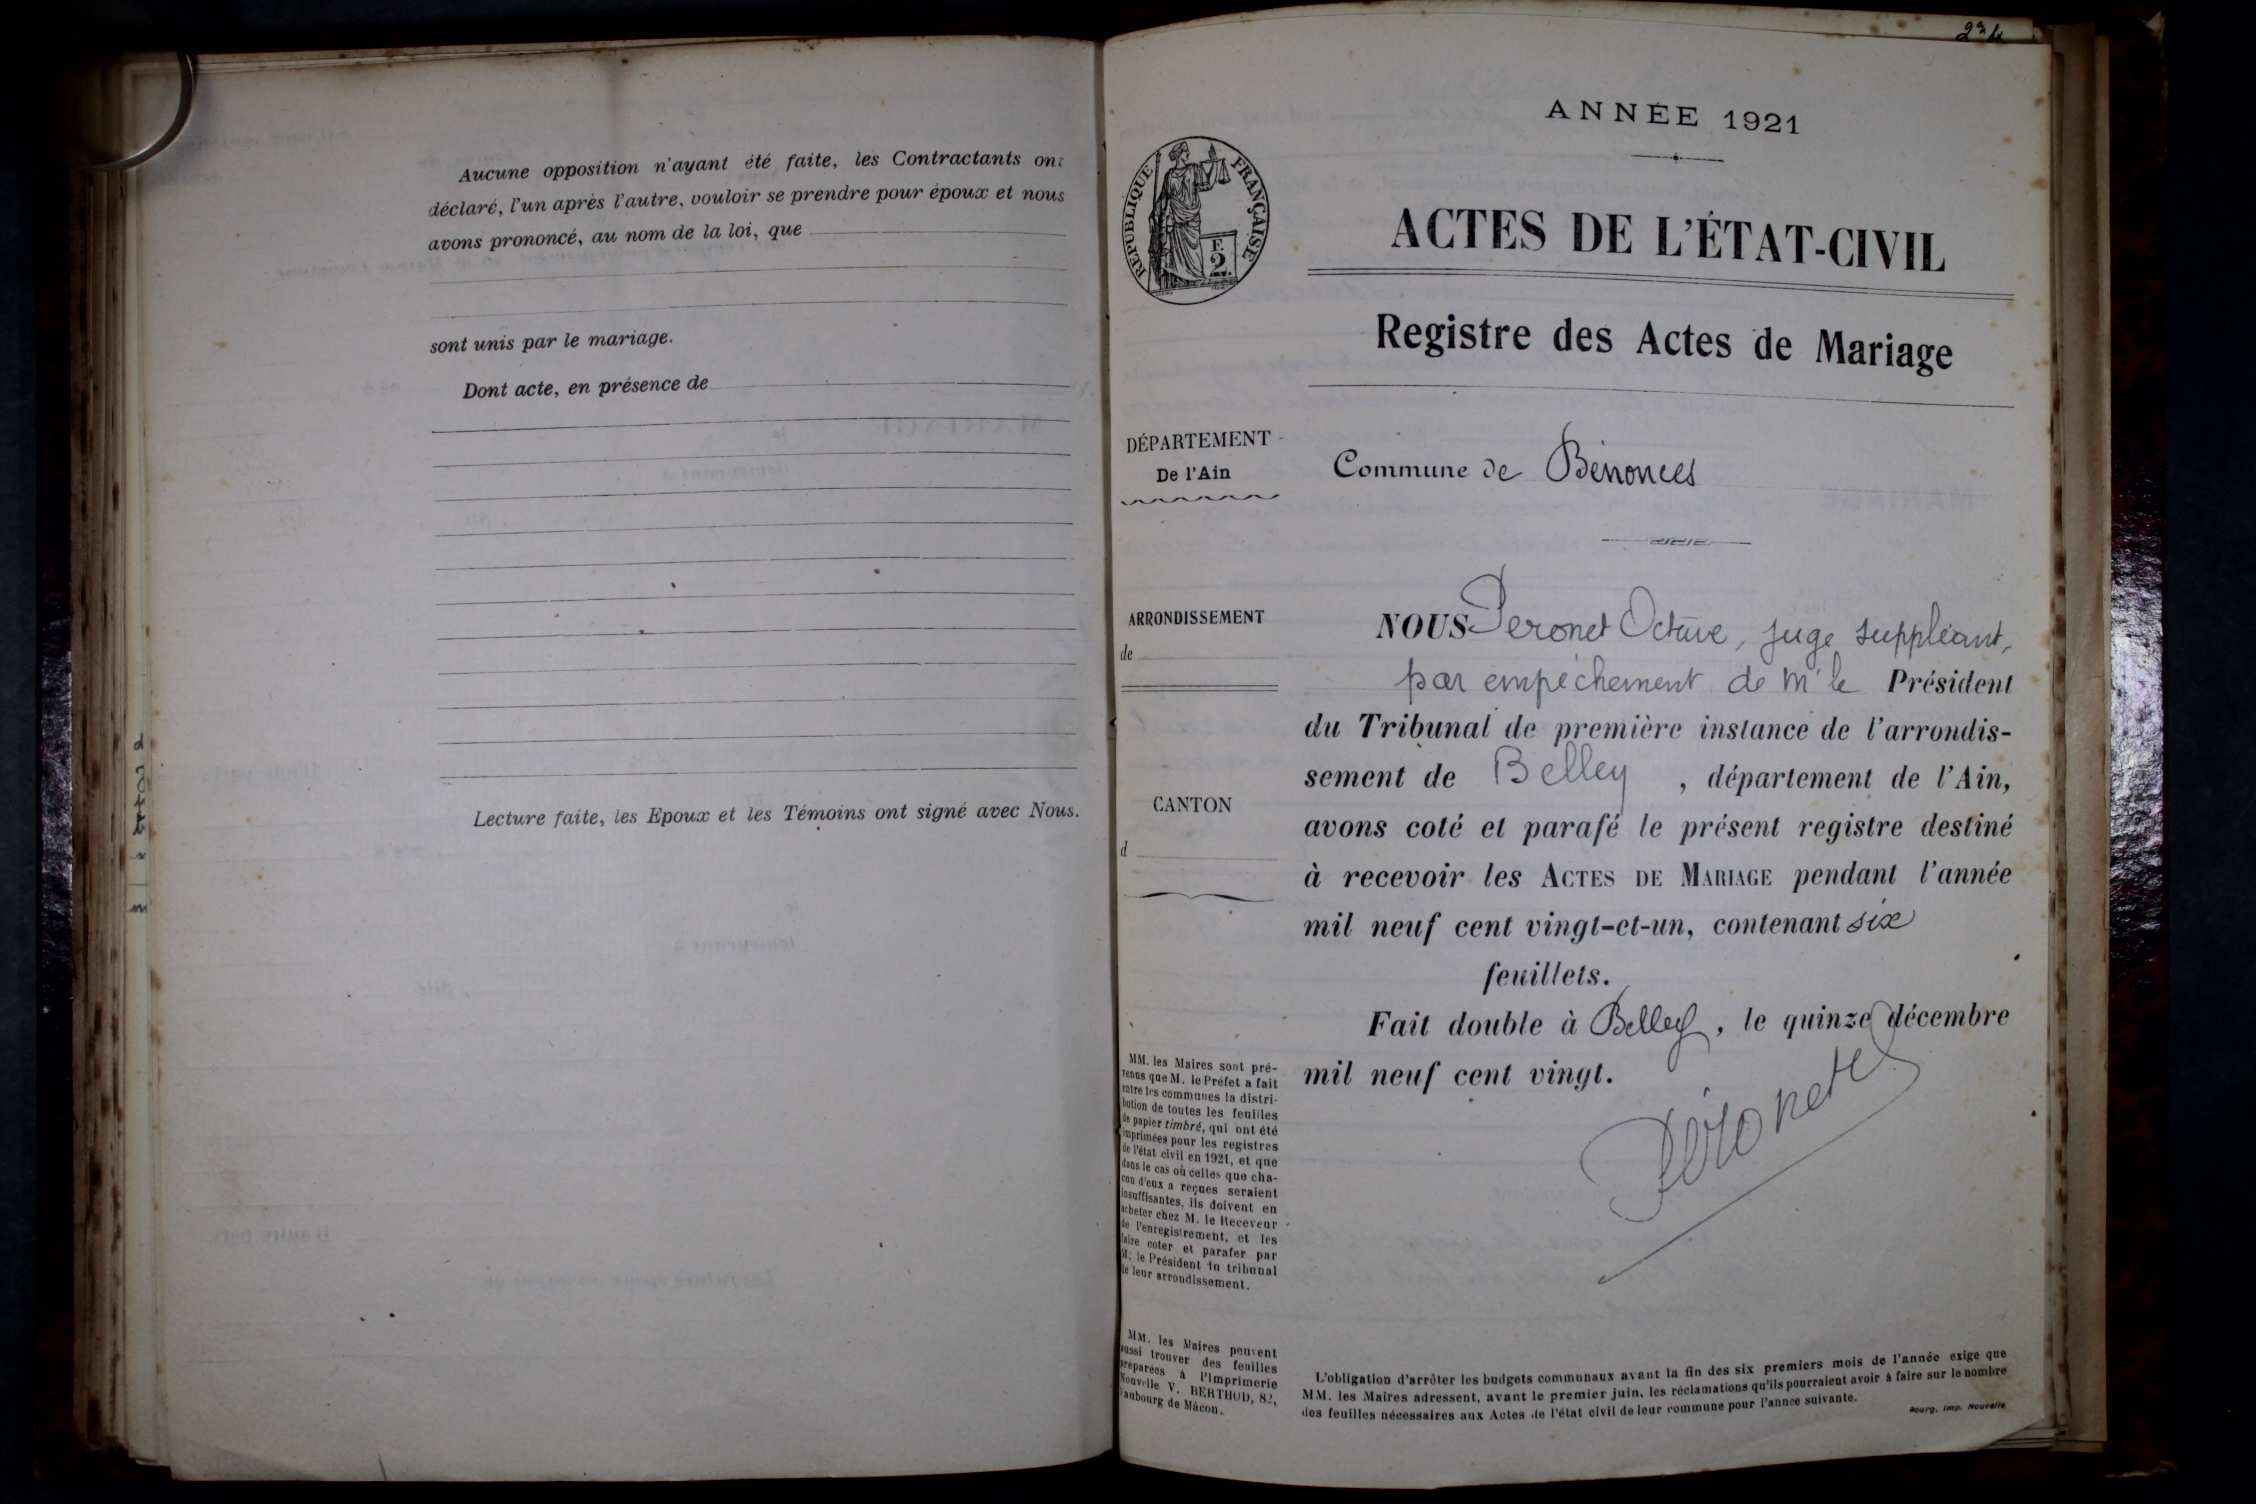 Aucune opposition n'ayant été faite, les Contractants ont
déclaré, l'un après l'autre, vouloir se prendre pour époux et nous
avons prononcé, au nom de la loi, que
sont unis par le mariage.
Dont acte, en présence de
Lecture faite, les Epoux et les Témoins ont signé avec Nous.
ANNÉE 1921
RÉPUBLIQUE FRANÇAISE
F.
2
ACTES DE L'ÉTAT-CIVIL
Registre des Actes de Mariage
DÉPARTEMENT
De l'Ain
Commune de Bénonces
ARRONDISSEMENT
de
CANTON
d
NOUS Peronet Octave, juge suppléant,
par empêchement de Mr le Président
du Tribunal de première instance de l'arrondis-
sement de Belley, département de l'Ain,
avons coté et parafé le présent registre destiné
à recevoir les ACTES DE MARIAGE pendant l'année
mil neuf cent vingt-et-un, contenant six
feuillets.
Fait double à Belley, le quinze décembre
mil neuf cent vingt.
Péronet
MM. les Maires sont pré-
venus que M. le Préfet a fait
entre les communes la distri-
bution de toutes les feuilles
de papier timbré, qui ont été
imprimées pour les registres
de l'état civil en 1921, et que
dans le cas où celles que cha-
cun d'eux a reçues seraient
insuffisantes, ils doivent en
acheter chez M. le Receveur
de l'enregistrement, et les
faire coter et parafer par
M. le Président du tribunal
de leur arrondissement.
MM. les Maires peuvent
aussi trouver des feuilles
préparées à l'Imprimerie
Nouvelle V. BERTHOD, 82,
Faubourg de Mâcon.
L'obligation d'arrêter les budgets communaux avant la fin des six premiers mois de l'année exige que
MM. les Maires adressent, avant le premier juin, les réclamations qu'ils pourraient avoir à faire sur le nombre
des feuilles nécessaires aux Actes de l'état civil de leur commune pour l'année suivante.
Bourg, Imp. Nouvelle